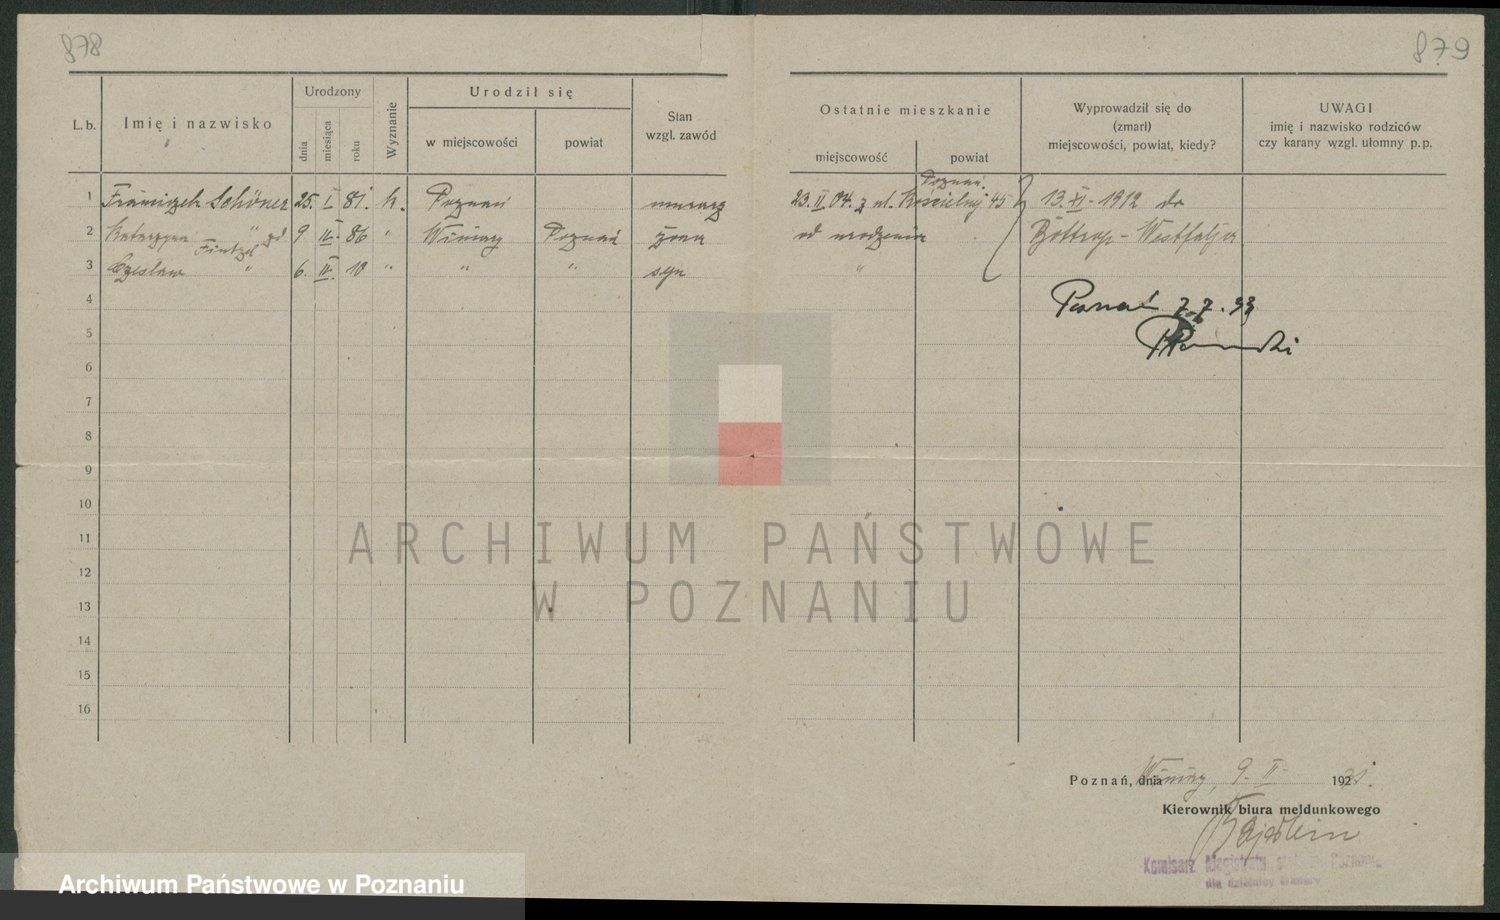 878
879
L. b.
Imię i nazwisko
Urodzony
dnia
miesiąca
roku
Wyznanie
Urodził się
w miejscowości
powiat
Stan
wzgl. zawód
Ostatnie mieszkanie
miejscowość
powiat
Wyprowadził się do
(zmarł)
miejscowości, powiat, kiedy?
UWAGI
imię i nazwisko rodziców
czy karany wzgl. ułomny p.p.
Poznań.
1 Franciszek Schöner 25. I. 81. k. Poznań murarz 23. II 04. z ul. Kościelny 45 13. XI - 1912 do
2 Katarzyna " zd 9 II - 86 " Winiary Poznań żona od urodzenia Bottrop - Westfalja
3 Czesław " 6. II. 10 " " " syn "
4
Poznań 7.7.33
5
6
7
8
9
10
11
12
13
14
15
16
ARCHIWUM PAŃSTWOWE
W POZNANIU
Poznań, dnia Winiary, 9. II - 192
Kierownik biura meldunkowego
Komisarz Magistratu
dla dzielnicy Winiary
Archiwum Państwowe w Poznaniu